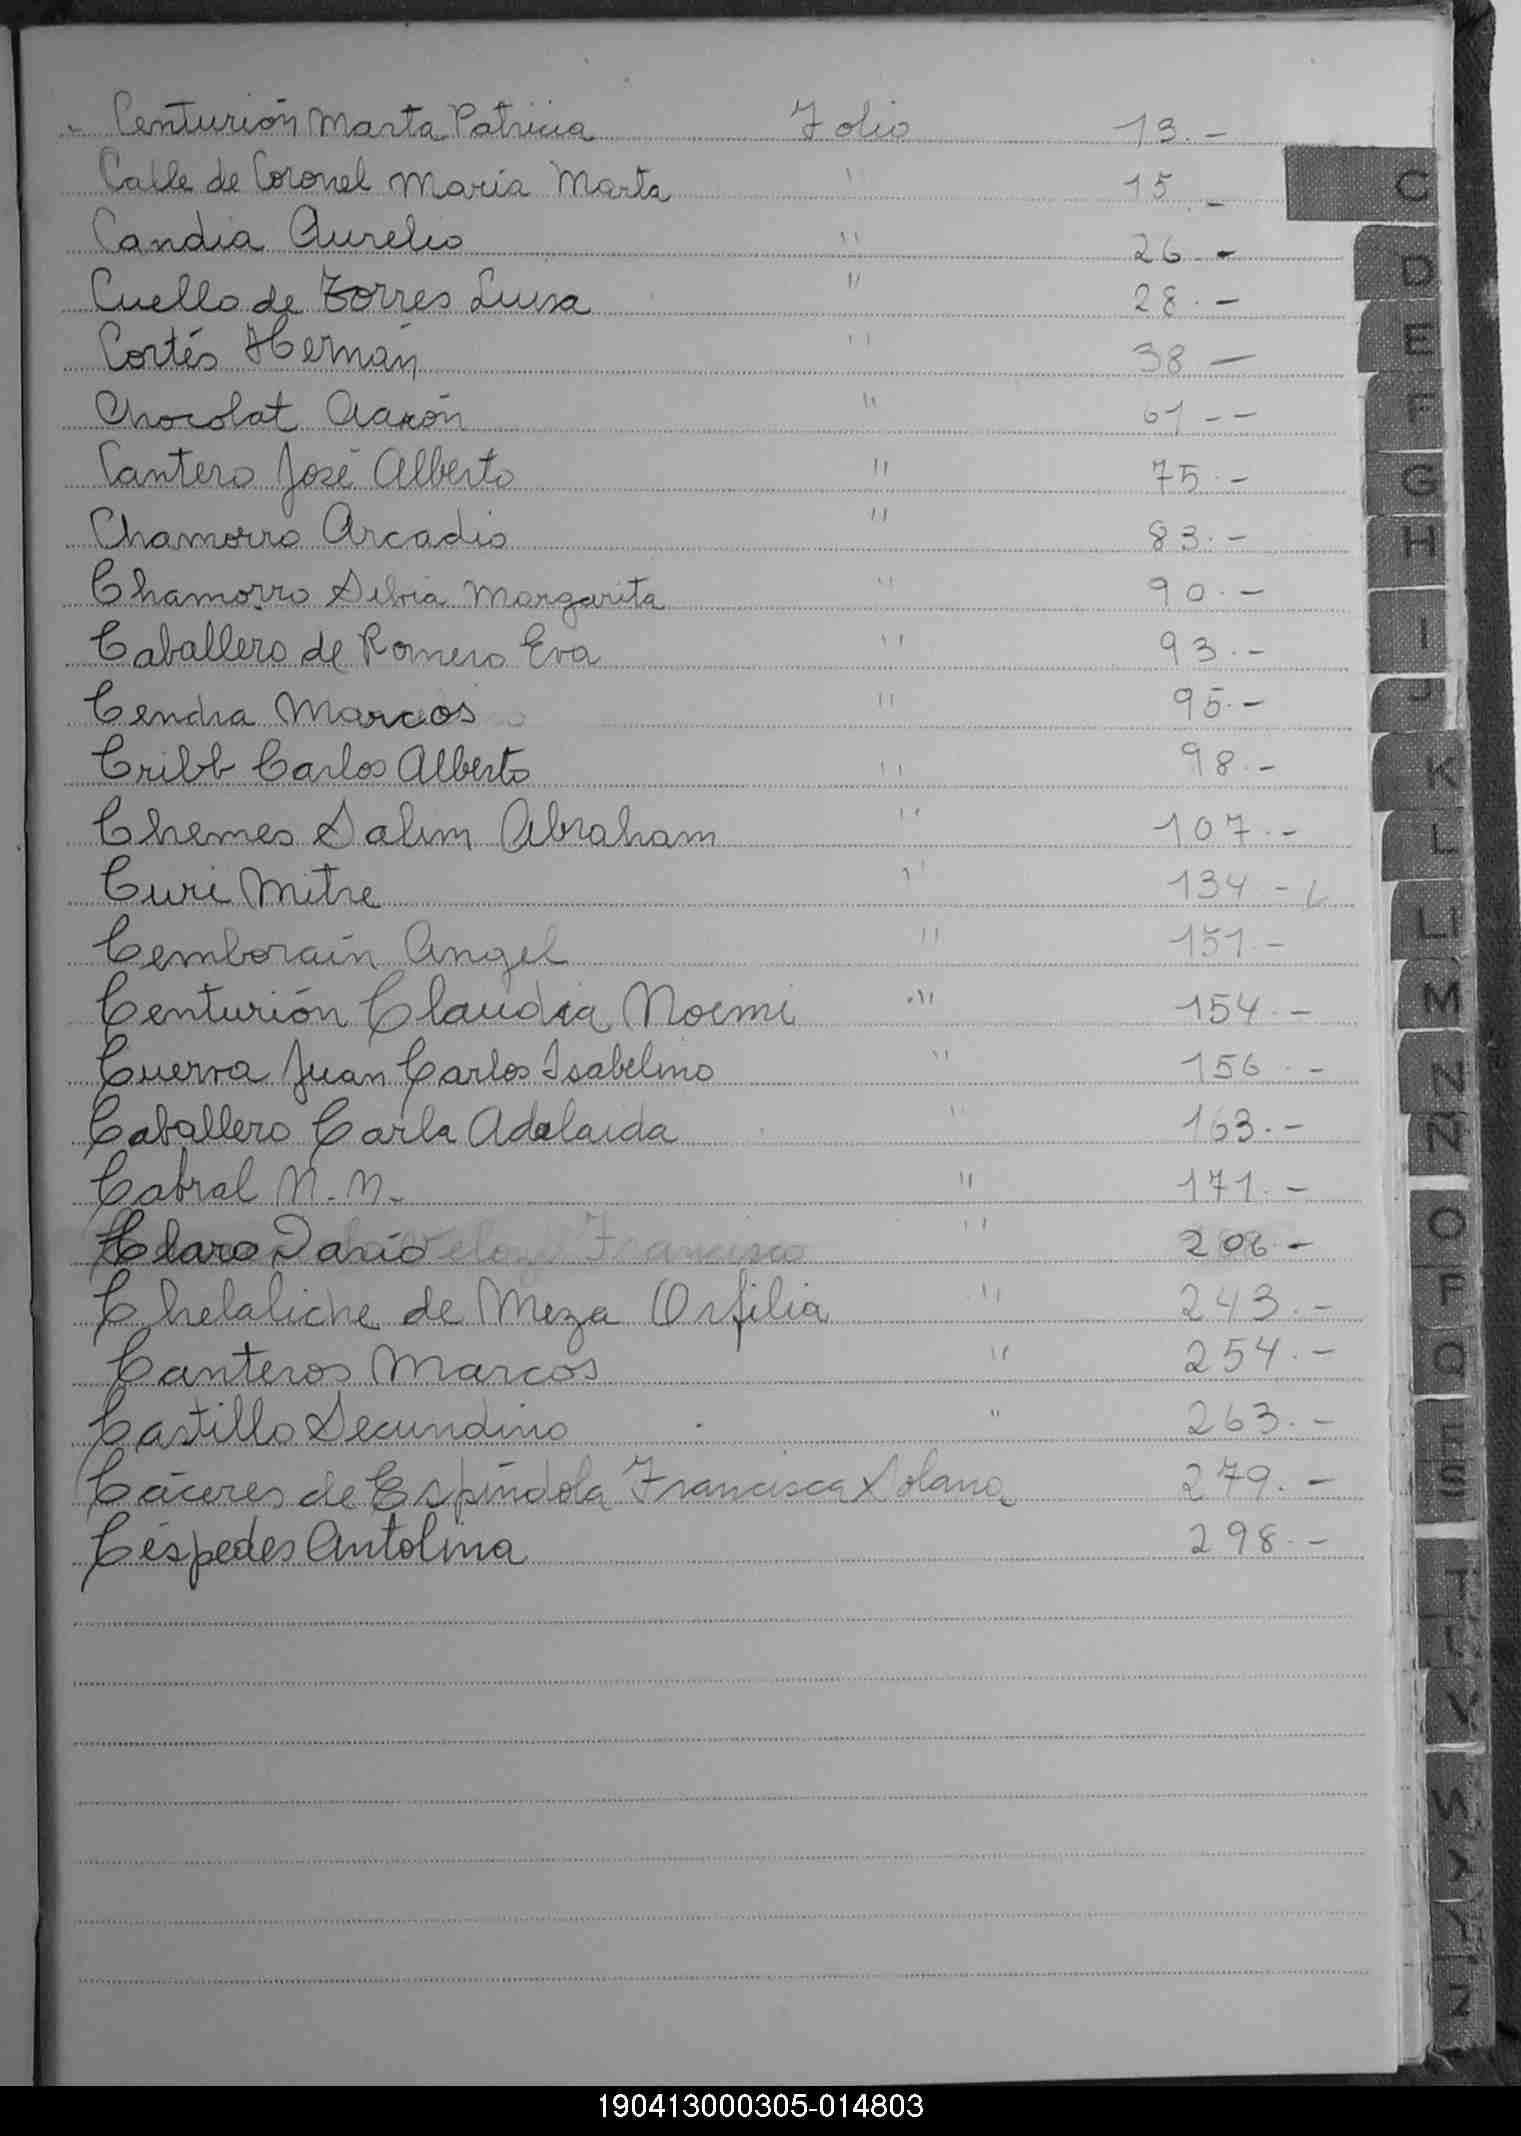 Centurión Marta Patricia Folio 13.-
Calle de Coronel María Marta " 15.-
Candia Aurelio " 26.-
Cuello de Torres Luisa " 28.-
Cortés Hernán " 38-
Chocolat Aarón " 61--
Cantero José Alberto " 75.-
Chamorro Arcadio " 83.-
Chamorro Silvia Margarita " 90.-
Caballero de Romero Eva " 93.-
Cendra Marcos " 95.-
Cribb Carlos Alberto " 98.-
Chemes Salim Abraham " 107.-
Curi Mitre " 134-
Cemborain Angel " 151.-
Centurión Claudia Noemi " 154.-
Cuerva Juan Carlos Isabelino " 156.-
Caballero Carla Adelaida " 163.-
Cabral N.N. " 171.-
Claro Darío " 208.-
Chelaliche de Meza Orfilia " 243.-
Canteros Marcos " 254.-
Castillo Secundino " 263.-
Cáceres de Espíndola Francisca Solana 279.-
Céspedes Antolina 298.-
C
D
E
F
G
H
I
J
K
L
Ll
M
N
Ñ
O
P
Q
R
S
T
U
V
W
X
Y
Z
190413000305-014803